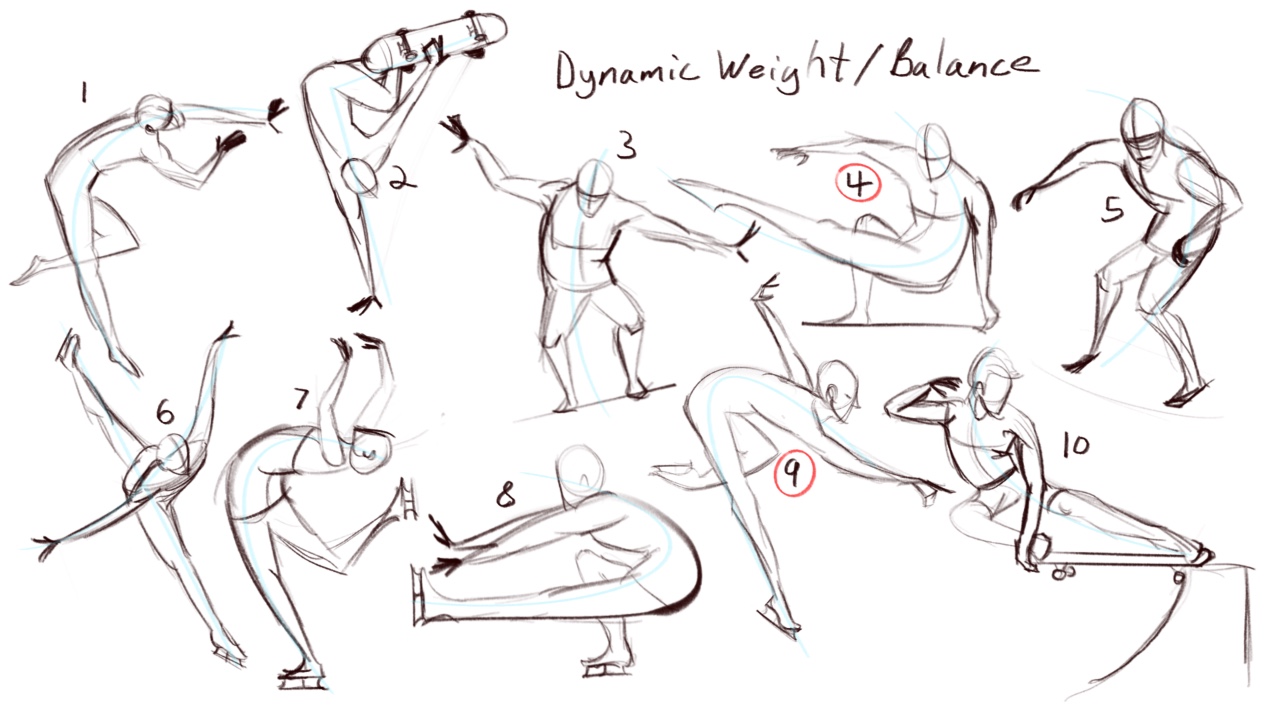 Dynamic Weight/Balance
1
2
3
4
5
6
7
8
9
10